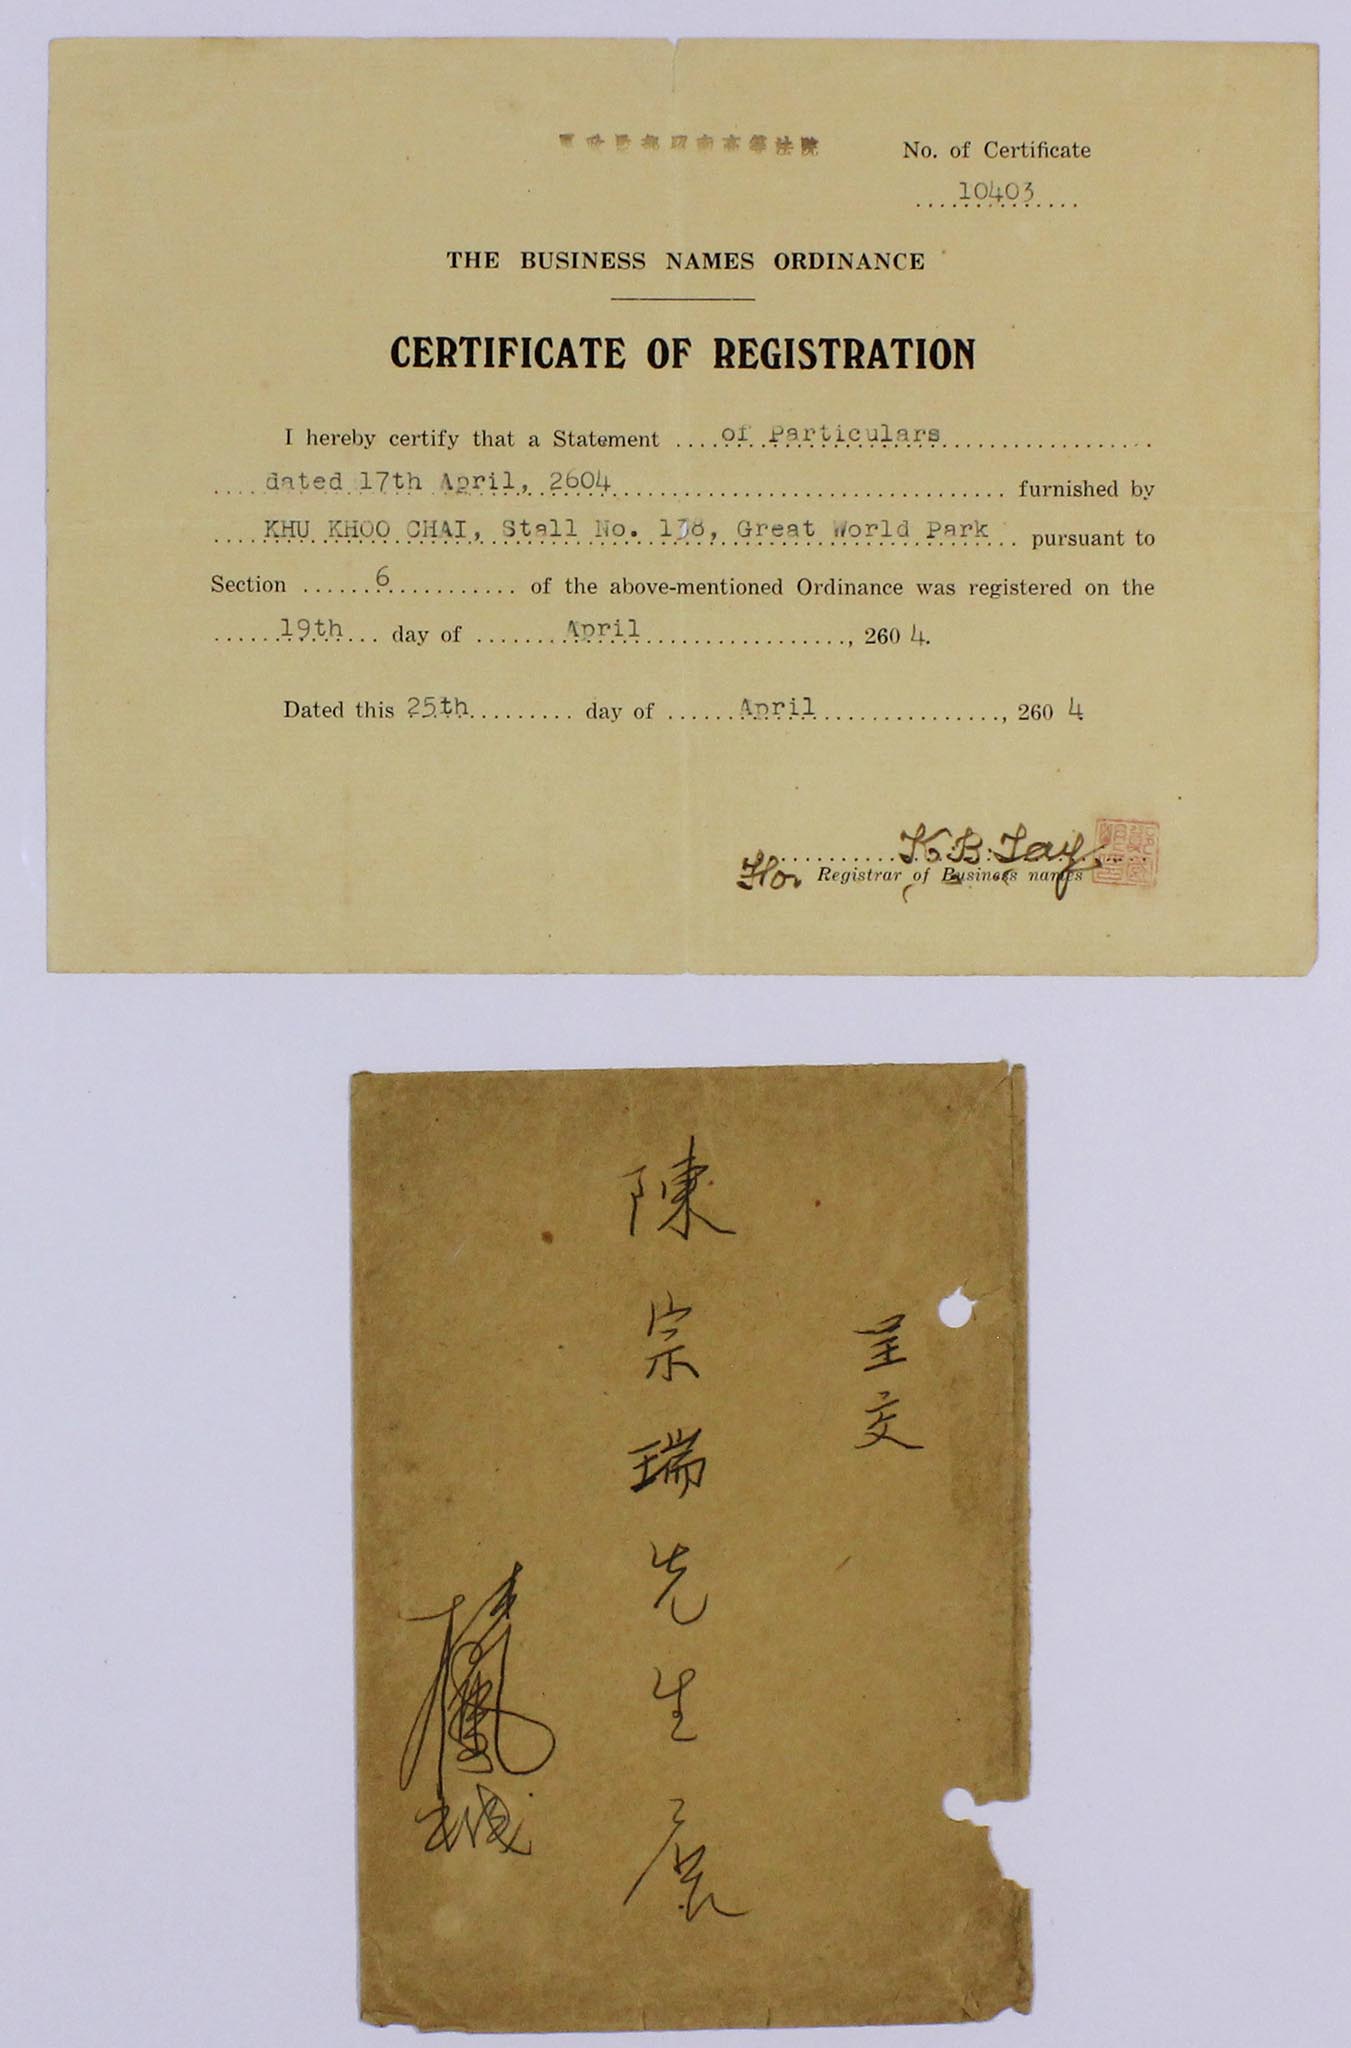 軍政監部昭南高等法院
No. of Certificate
10403
THE BUSINESS NAMES ORDINANCE
CERTIFICATE OF REGISTRATION
I hereby certify that a Statement of Particulars
dated 17th April, 2604 furnished by
KHU KHOO CHAI, Stall No. 138, Great World Park pursuant to
Section 6 of the above-mentioned Ordinance was registered on the
19th day of April, 2604.
Dated this 25th day of April, 2604
K. B. Tay
For Registrar of Business names
呈交
陳宗瑞先生展